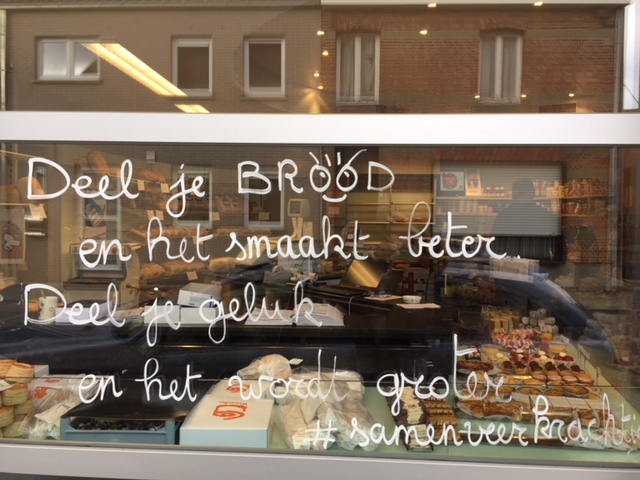 Deel je BROOD
en het smaakt beter
Deel je geluk
en het wordt groter
#samenveerkracht